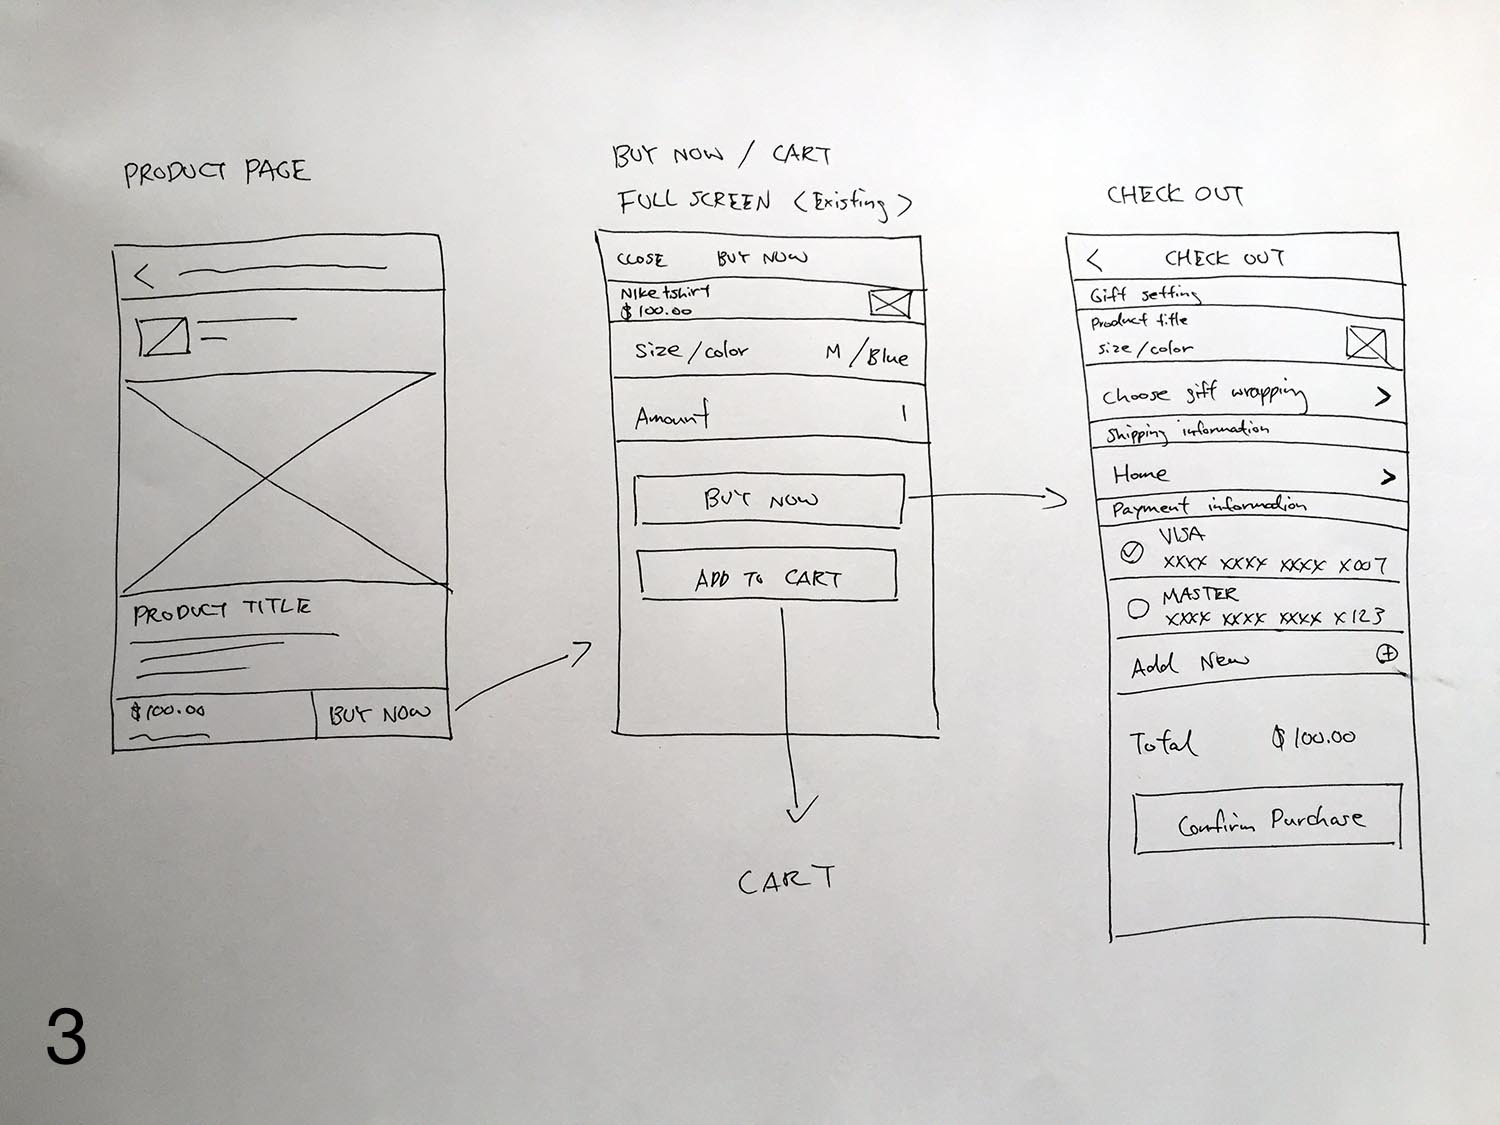 PRODUCT PAGE
PRODUCT TITLE
$100.00
BUY NOW
BUY NOW / CART
FULL SCREEN <Existing>
CLOSE BUY NOW
Nike tshirt
$100.00
Size/color M/Blue
Amount 1
BUY NOW
ADD TO CART
CART
CHECK OUT
< CHECK OUT
Gift setting
Product title
size/color
Choose gift wrapping >
Shipping information
Home >
Payment information
VISA
XXXX XXXX XXXX X007
MASTER
XXXX XXXX XXXX X123
Add New +
Total $100.00
Confirm Purchase
3